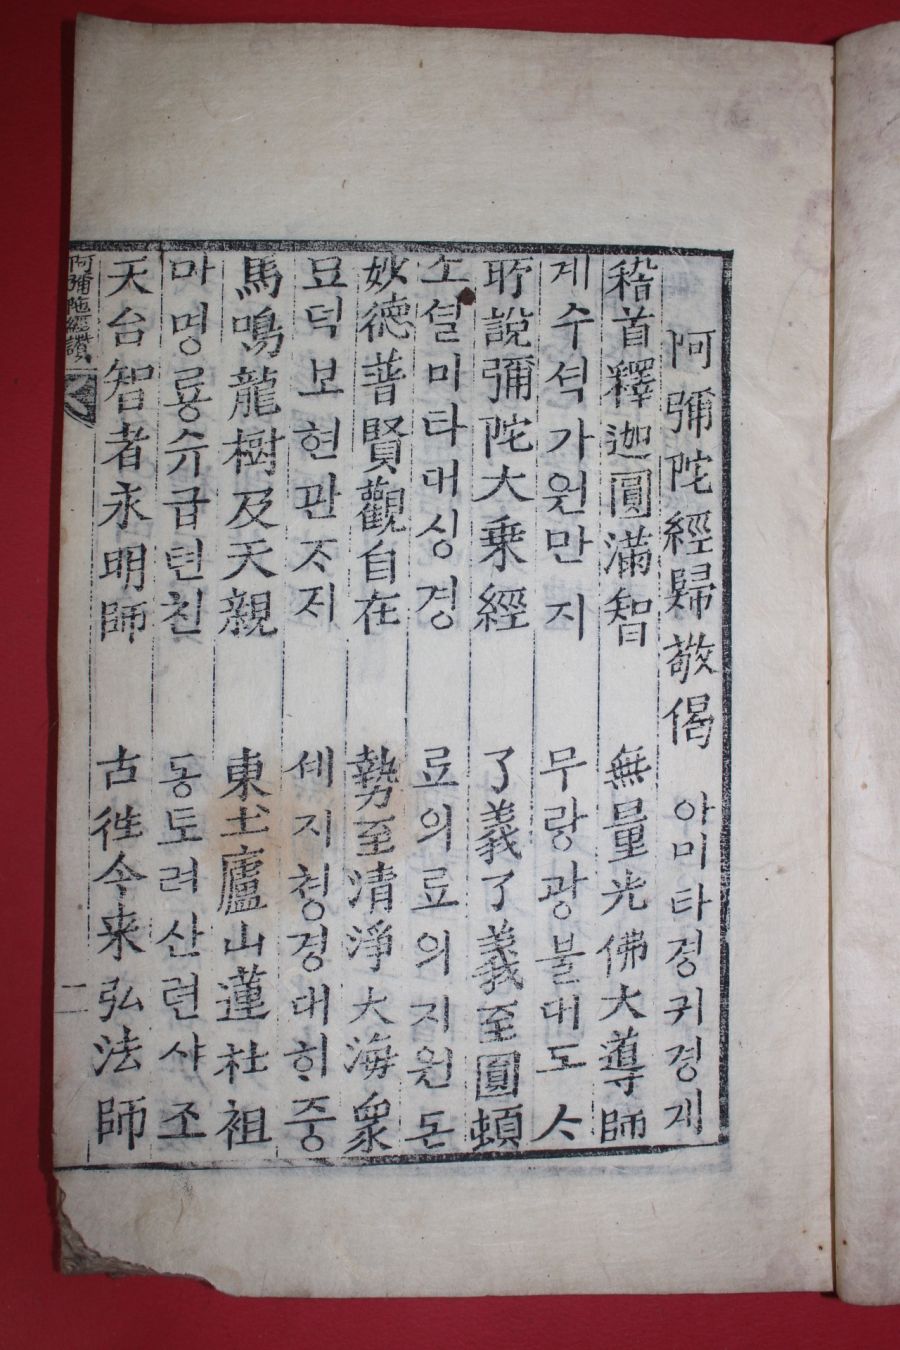 阿彌陀經歸敬偈 아미타경귀경게
稽首釋迦圓滿智 無量光佛大導師
계수셕가원만지 무량광불대도ᄉᆞ
所說彌陀大乗經 了義了義至圓頓
소셜미타대싱경 료의료의지원돈
妙德普賢觀自在 勢至清淨大海衆
묘덕보현관ᄌᆞ지 셰지쳥경대ᄒᆡ즁
馬鳴龍樹及天親 東土廬山蓮社祖
마명룡슈급텬친 동토려산련샤조
天台智者永明師 古徃今来弘法師
阿彌陁經讚
二